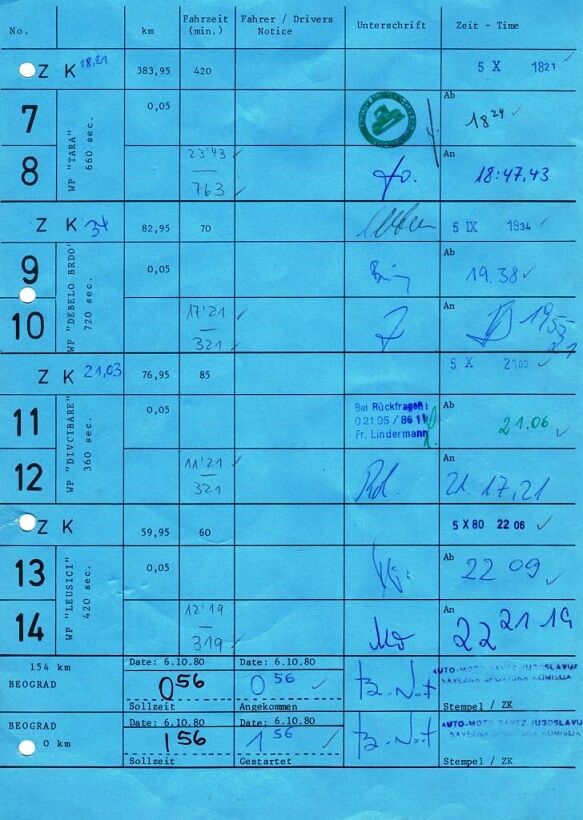 No.
km
Fahrzeit
(min.)
Fahrer / Drivers
Notice
Unterschrift
Zeit - Time
Z K 18,21 383,95 420 5 X 1821
7
WP "TARA"
660 sec.
0,05
Ab
18 24
8
23'43
763
An
18:47,43
Z K 34 82,95 70 5 IX 1934
9
WP "DEBELO BRDO"
720 sec.
0,05
Ab
19.38
10
17'21
321
An
1955
21
Z K 21,03 76,95 85 5 X 2103
11
WP "DIVCIBARE"
360 sec.
0,05
Bei Rückfragen:
02195 / 86 11
Fr. Lindermann
Ab
21.06
12
11'21
321
An
21.17,21
Z K 59,95 60 5 X 80 22 06
13
WP "LEUSICI"
420 sec.
0,05
Ab
22 09
14
12'19
319
An
22 21 19
154 km
BEOGRAD
Date: 6.10.80
0 56
Sollzeit
Date: 6.10.80
0 56
Angekommen
AUTO-MOTO SAVEZ JUGOSLAVIJE
SAVEZNA SPORTSKA KOMISIJA
Stempel / ZK
BEOGRAD
0 km
Date: 6.10.80
1 56
Sollzeit
Date: 6.10.80
1 56
Gestartet
AUTO-MOTO SAVEZ JUGOSLAVIJE
SAVEZNA SPORTSKA KOMISIJA
Stempel / ZK